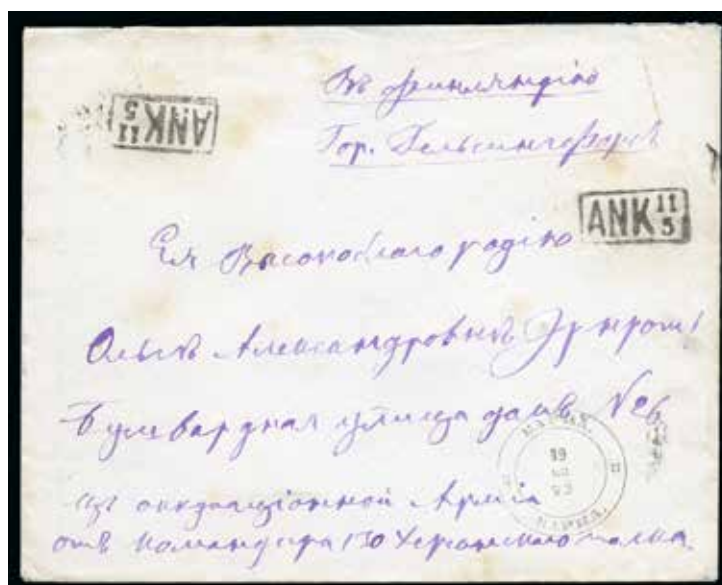 Въ Финляндію
ANK 11
5
Гор. Гельсингфорсъ
ANK 11
5
Ея Высокоблагородію
Ольгѣ Александровнѣ
Булевардная улица домъ №6
19
ВАРНА.
изъ оккупаціонной Арміи
отъ Командира 130 Херсонскаго полка.